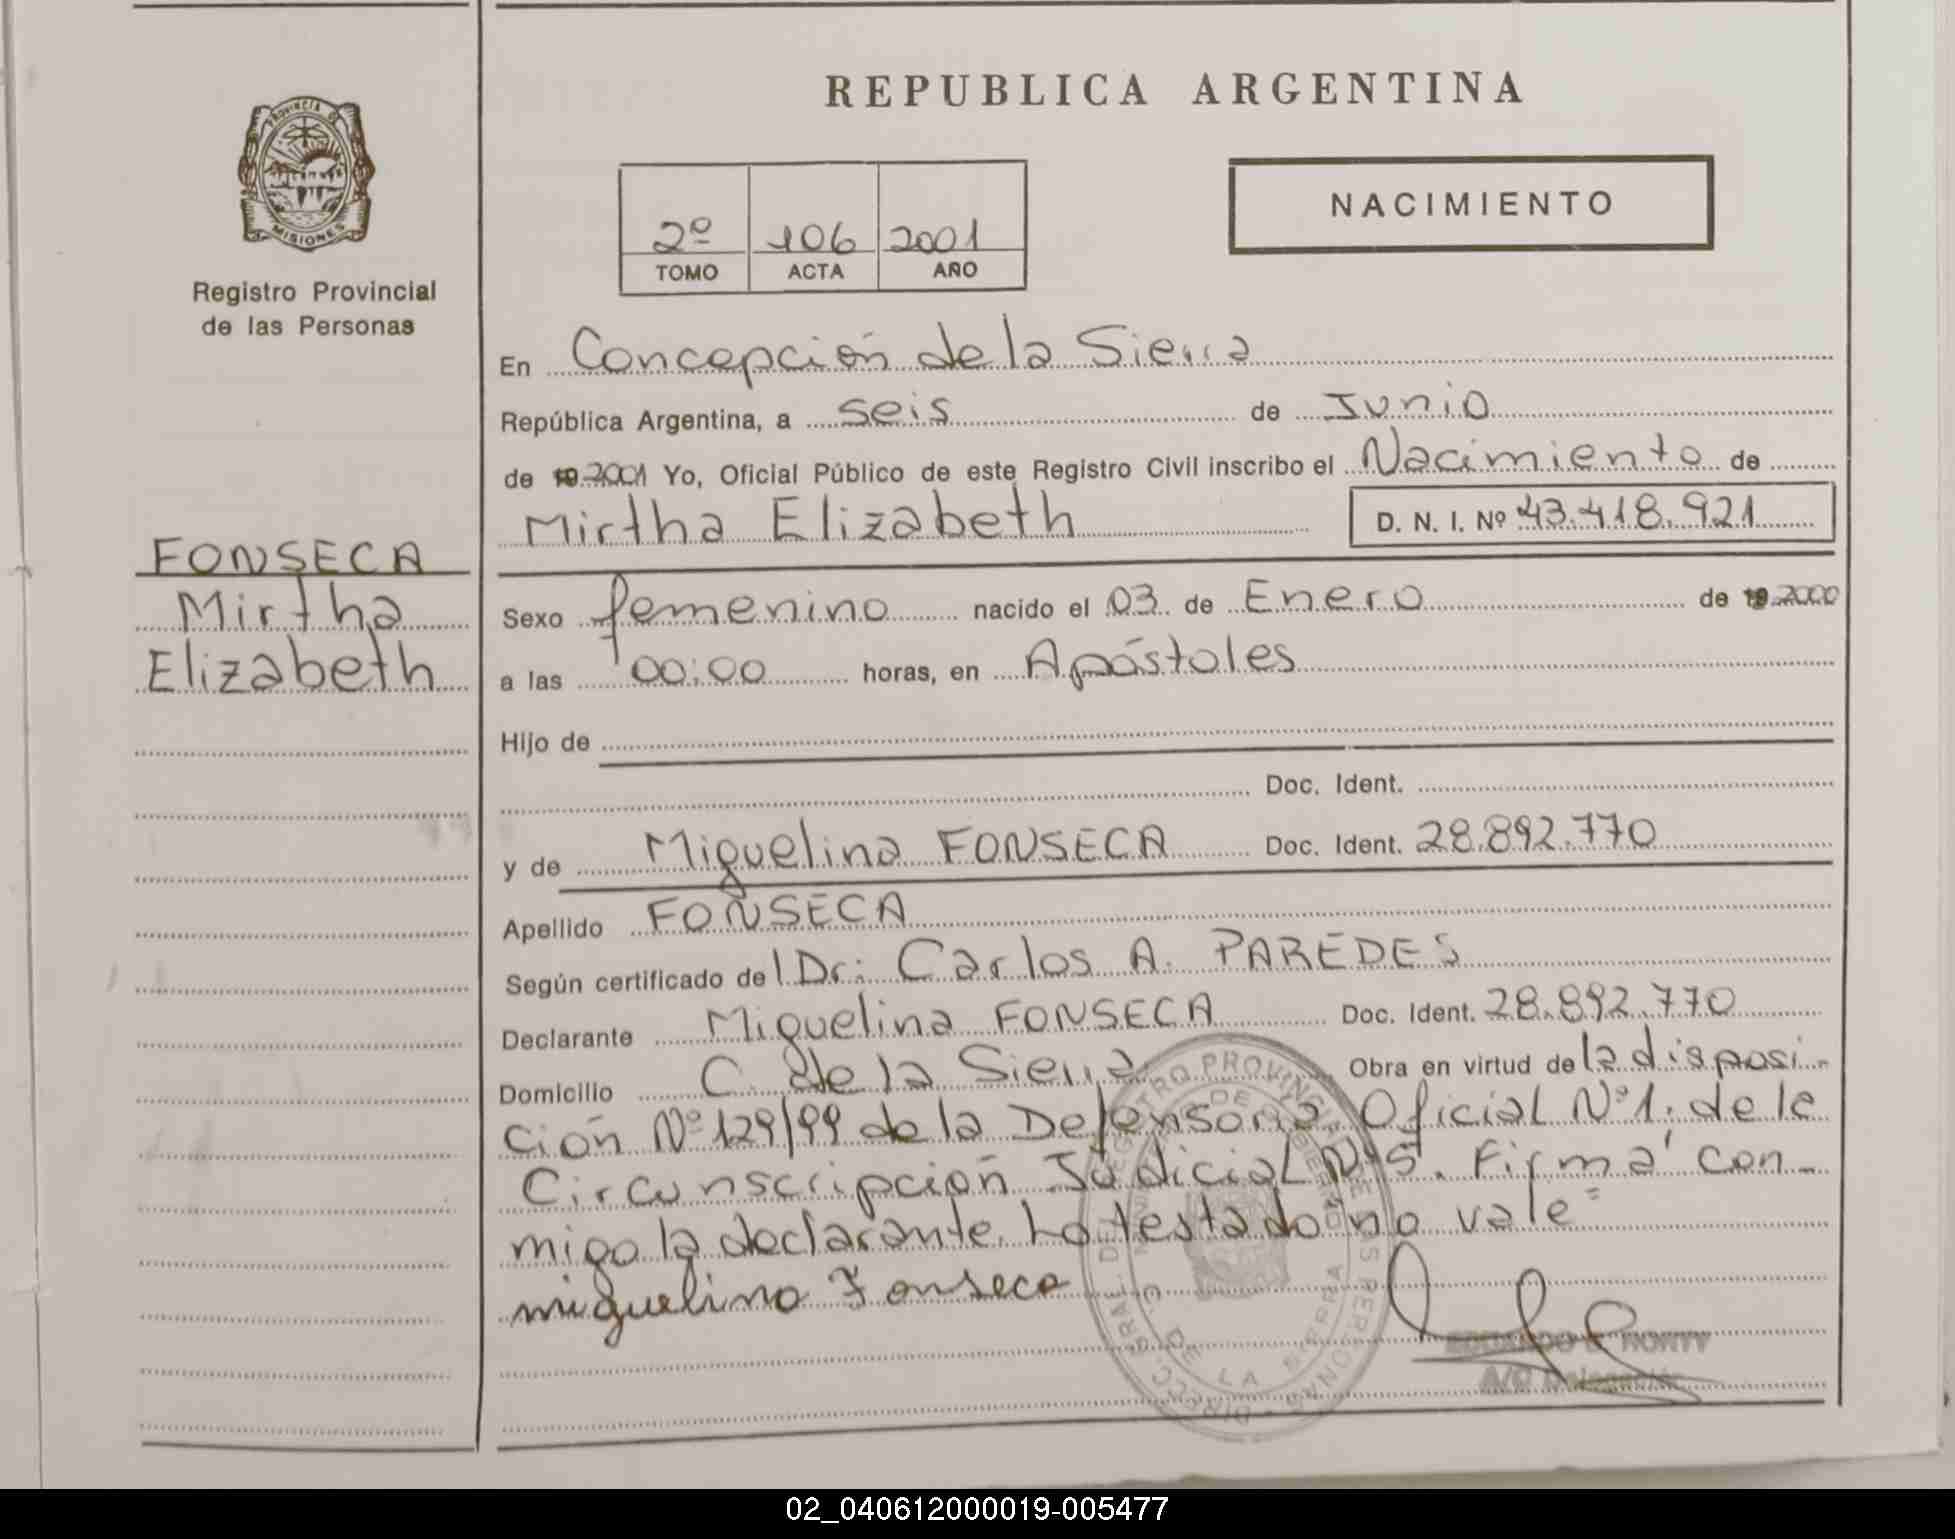 REPUBLICA ARGENTINA
PROVINCIA DE
MISIONES
Registro Provincial
de las Personas
2º 106 2001
TOMO ACTA AÑO
NACIMIENTO
En Concepción de la Sierra
República Argentina, a seis de Junio
de 19 2001 Yo, Oficial Público de este Registro Civil inscribo el Nacimiento de
Mirtha Elizabeth D. N. I. Nº 43.418.921
FONSECA
Mirtha
Elizabeth
Sexo femenino nacido el 03 de Enero de 19 2000
a las 00:00 horas, en Apóstoles
Hijo de
Doc. Ident.
y de Miguelina FONSECA Doc. Ident. 28.892.770
Apellido FONSECA
Según certificado de l Dr. Carlos A. PAREDES
Declarante Miguelina FONSECA Doc. Ident. 28.892.770
Domicilio C. de la Sierra Obra en virtud de la disposi-
ción Nº 129/99 de la Defensoría Oficial Nº 1. de la
Circunscripción Judicial Nº 5. Firma con-
migo la declarante. Lo testado "no vale"
miguelina Fonseca
DE LA SIERRA
A/C Delegación
02_040612000019-005477